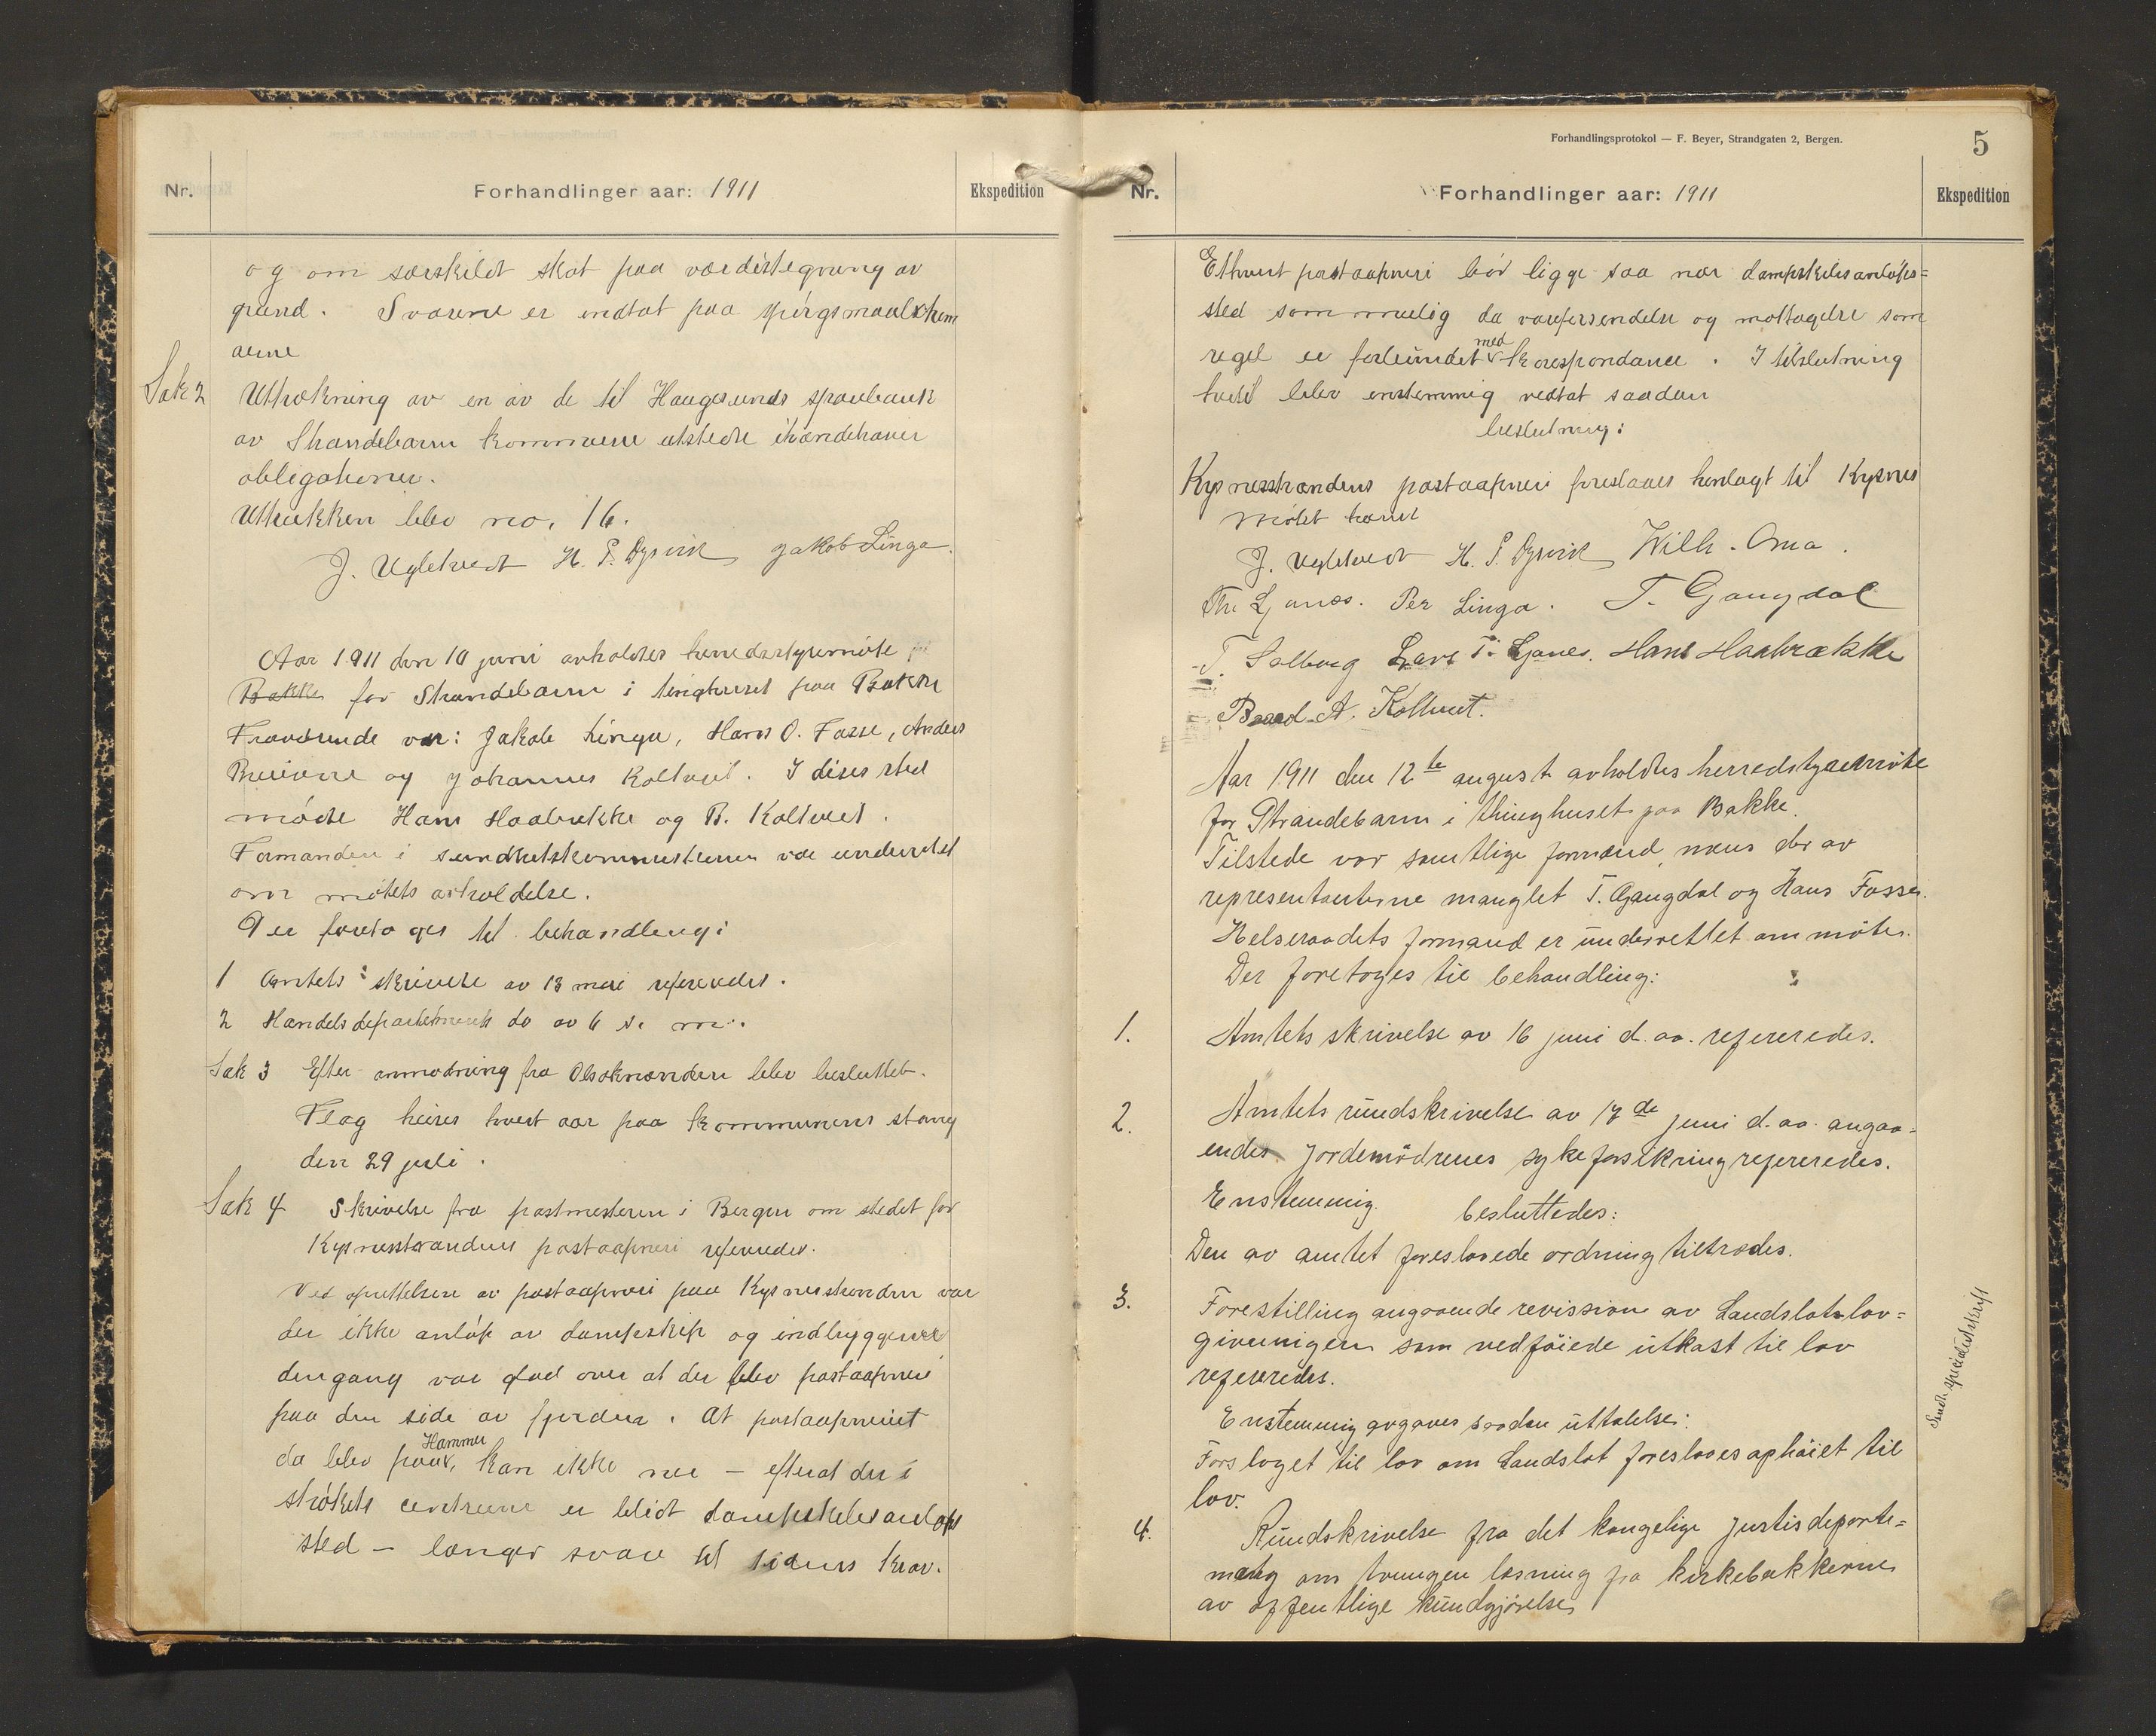 Nr.
Forhandlinger aar: 1911
Ekspedition
og om særskildt skat paa værdistegning av
grund. Svarene er indtat paa spørgsmaalskem
aerne
Sak 2
Uttrækning av en av de til Haugesunds sparebank
av Strandebarm kommune utstedte ihændehaver
obligationer.
Uttrukken blev no. 16.
J. Ugletvedt H. P. Dysvik Jakob Linga.
Aar 1911 den 10 juni avholdtes herredsstyremøte
Bakke for Strandebarm i tinghuset paa Bakke
Fraværende var: Jakob Linga, Hans O. Fosse, Anders
og Johannes Koltveit. I disses sted
møtte Hans Haabrekke og B. Koltveit.
Formanden i sundhetskommisionen var underrettet
om møtets avholdelse.
Der foretoges til behandling:
1 Amtets skrivelse av 13 mai refereredes.
2 Handelsdepartements do av 6 s. m.
Sak 3 Efter anmodning fra Olsoknænden blev besluttet.
Flag heises hvert aar paa kommunens stang
den 29 juli.
Sak 4 Skrivelse fra postmesteren i Bergen om stedet for
Kysnesstrandens postaapneri refereredes.
Ved oprettelsen av postaapneri paa Kysnesstranden var
der ikke anløp av dampskip og indbyggerne
dengang var glad over at der blev postaapneri
paa den side av fjorden. At postaapneriet
da blev paa Hammer, kan ikke nu – efterat der i
strøkets centrum er blidt dampskibsanløps
sted – længer svare til tidens krav.
Forhandlingsprotokol — F. Beyer, Strandgaten 2, Bergen.
5
Nr.
Forhandlinger aar: 1911
Ekspedition
Ethvert postaapneri bør ligge saa nær dampskibsanløps=
sted som muelig da vareforsendelse og mottagelse som
regel er forbundet med korespondance. I tilslutning
hertil blev enstemmig vedtat saadan
beslutning:
Kysnesstrandens postaapneri foreslaaes henlagt til Kysnes
Møtet hævet
J. Ugletvedt H. P. Dysvik Wilh. Oma.
Th. Ljones. Per Linga. T. Gangdal
T. Solberg Lars T. Ljones. Hans Haabrække
Baard A. Koltveit.
Aar 1911 den 12te august avholdtes herredstyremøte
for Strandebarm i thinghuset paa Bakke.
Tilstede var samtlige formænd, mens der av
representanterne manglet T. Gangdal og Hans Fosse.
Helseraadets formand er underrettet om møtet.
Der foretoges til behandling:
1. Amtets skrivelse av 16 juni d. aa. refereredes.
2. Amtets rundskrivelse av 17de juni d. aa. angaa=
ende jordemødrenes sykeforsikring refereredes.
Enstemmig besluttedes:
Den av amtet foreslaaede ordning tiltrædes.
3. Forestilling angaaende revission av Landslotslov=
givningen som vedføiede utkast til lov
refereredes.
Enstemmig avgaves saadan uttalelse:
Forslaget til lov om Landslot foreslaaes ophøiet til
lov.
Sendt speciel utskrift
4. Rundskrivelse fra det kongelige justisdeparte=
ment om tvungen læsning fra kirkebakkerne
av offentlige kundgjørelser